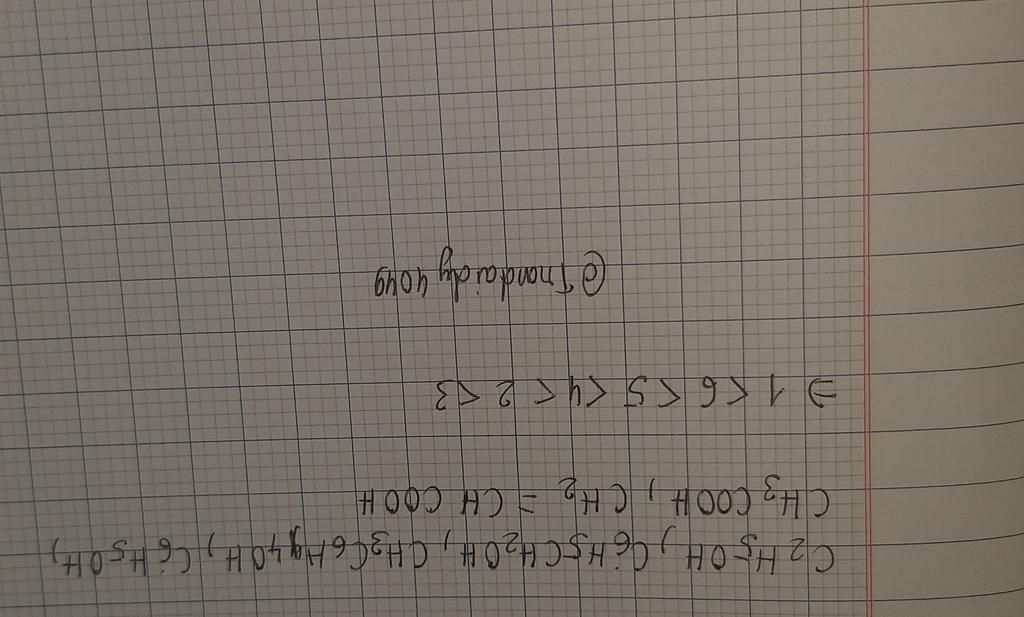 C2H5OH, C6H5CH2OH, CH3C6H4OH, C6H5OH,
CH3COOH, CH2 = CH COOH
⇒ 1 < 6 < 5 < 4 < 2 < 3